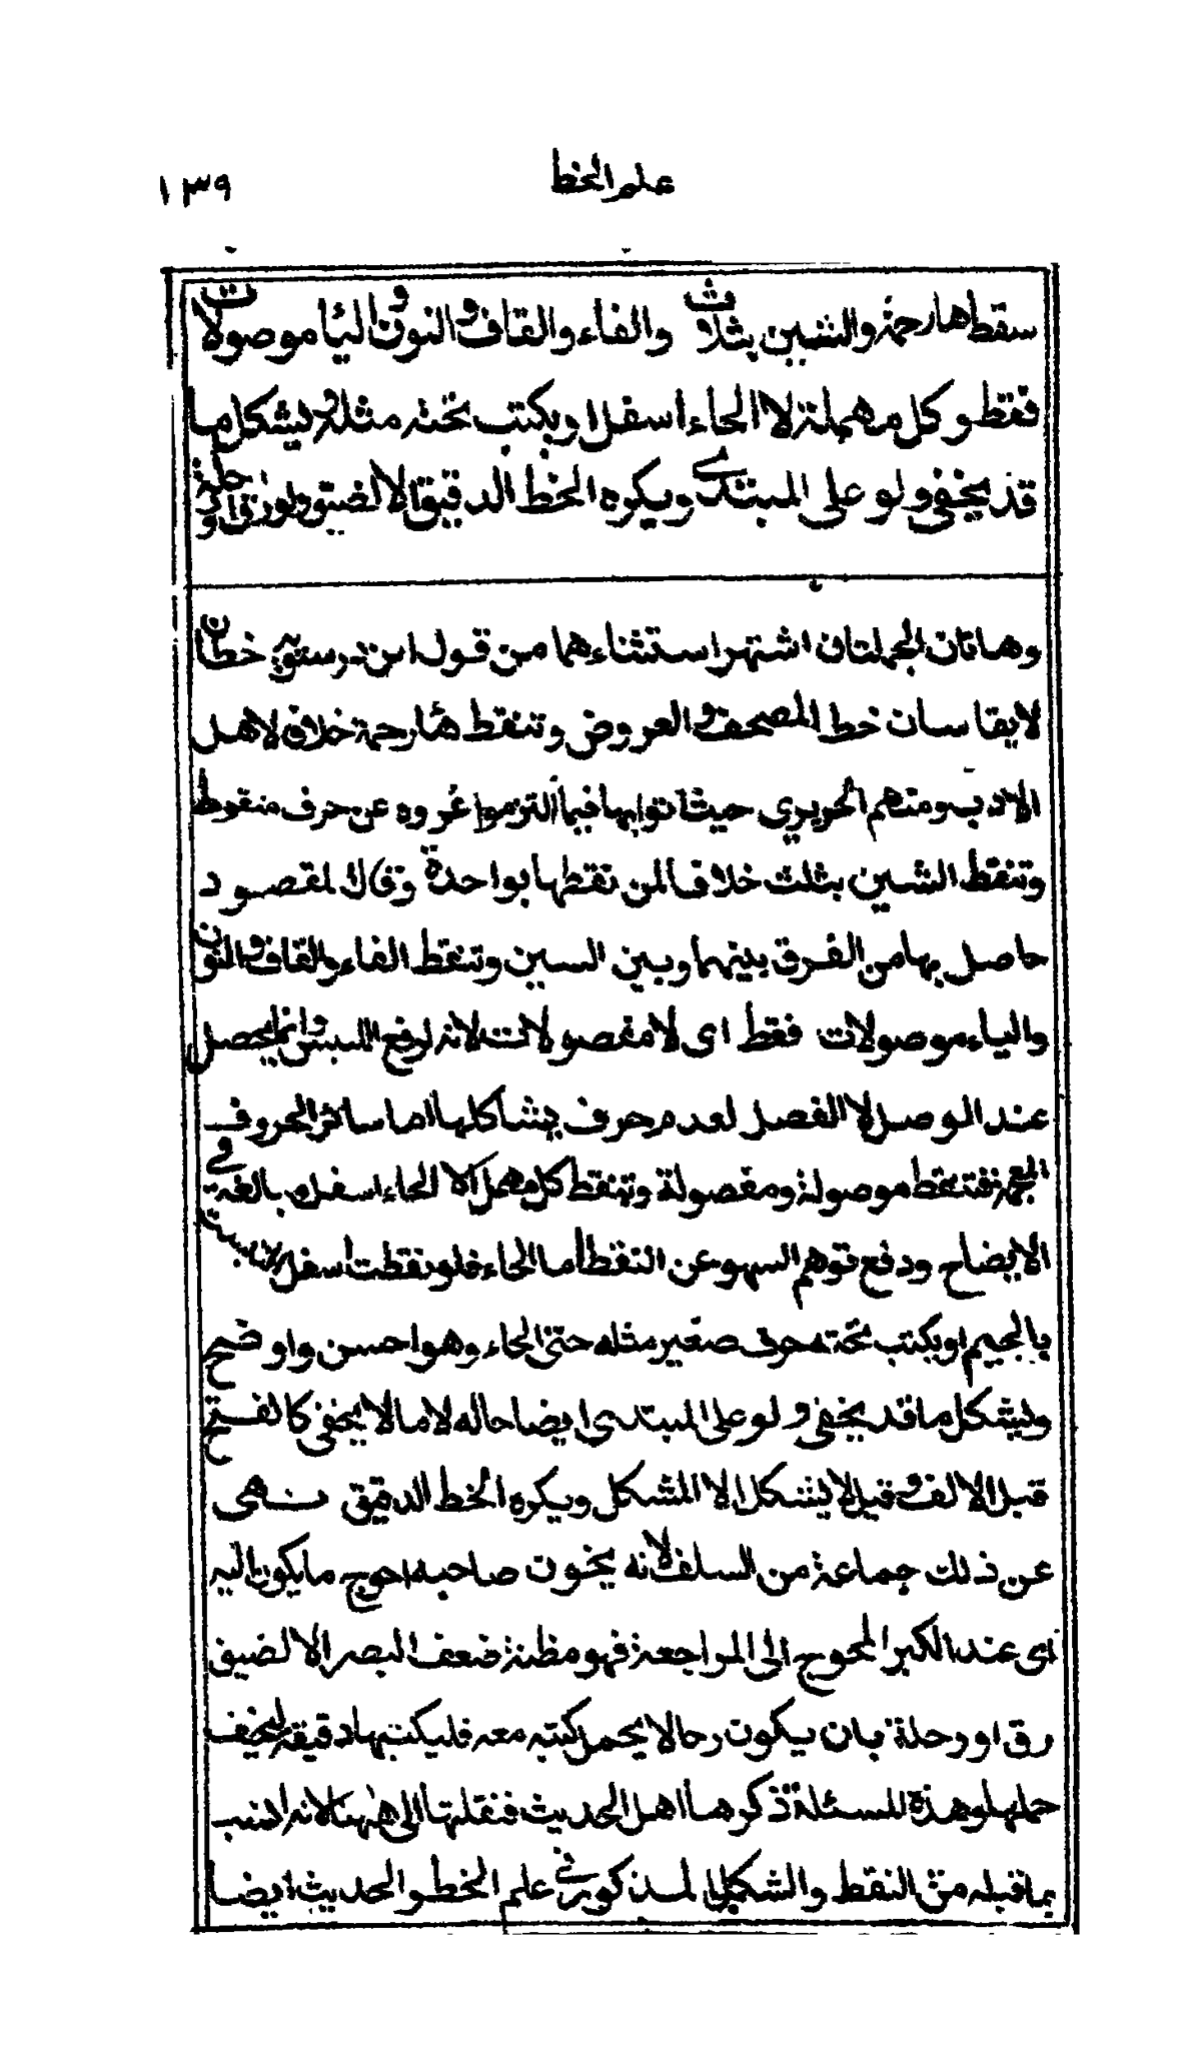 علم الخط
١٣٩
سقط ها رحمة والشين بثلاث والفاء والقاف والنون واليا موصولات
فقط وكل مهملة لا الحاء اسفل او يكتب تحته مثله ويشكل ما
قد يخفى ولو على المبتدى ويكره الخط الدقيق الا لضيق رق او رحلة
وهاتان الجملتان اشتهر استثناءهما من قول ابن درستويه خطان
لا يقاسان خط المصحف والعروض وتنقط ها رحمة خلافا لاهل
الادب ومنهم الحريري حيث اتوا بها فيما التزموا عروه عن حرف منقوط
وتنقط الشين بثلث خلافا لمن نقطها بواحدة وقال المقصود
حاصل بها من الفرق بينهما وبين السين وتنقط الفاء والقاف والنون
والياء موصولات فقط اى لا مفصولات لانه لرفع اللبس وانما يحصل
عند الوصل لا الفصل لعدم حرف يشاكلها اما سائر الحروف
المعجمة فتنقط موصولة ومفصولة وتنقط كل مهمل الا الحاء اسفل مبالغة في
الايضاح ودفع توهم السهو عن النقط أما الحاء فلو نقطت أسفل لالتبست
بالجيم او يكتب تحته حرف صغير مثله حتى الحاء وهو احسن واوضح
وليشكل ما قد يخفى ولو على المبتدى ايضا حاله لا ما لا يخفى كالفتح
قبل الالف وقيل لا يشكل الا المشكل ويكره الخط الدقيق نهى
عن ذلك جماعة من السلف لانه يخون صاحبه احوج ما يكون اليه
اى عند الكبر المحوج الى المراجعة فهو مظنة ضعف البصر الا لضيق
رق او رحلة بان يكون رحالا يحمل كتبه معه فليكتبها دقيقة ليخف
حملها وهذه المسئلة ذكرها اهل الحديث فنقلتها الى ههنا لانه انسب
بما قبله من النقط والشكل المذكور في علم الخط والحديث ايضا